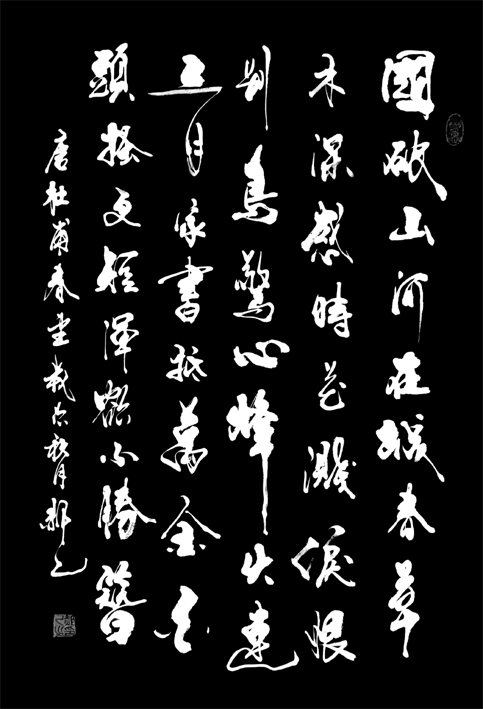 國破山河在城春草
木深感時花濺淚恨
別鳥驚心烽火連
三月家書抵萬金白
頭搔更短渾欲不勝簪
唐杜甫春望秋月